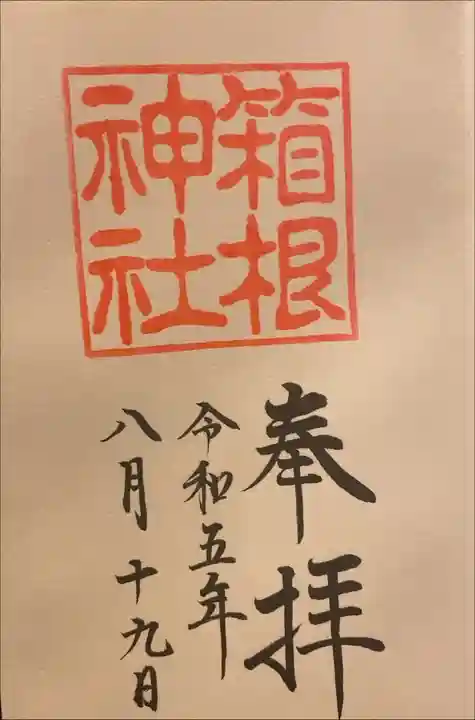 箱根
神社
奉拝
令和五年
八月十九日